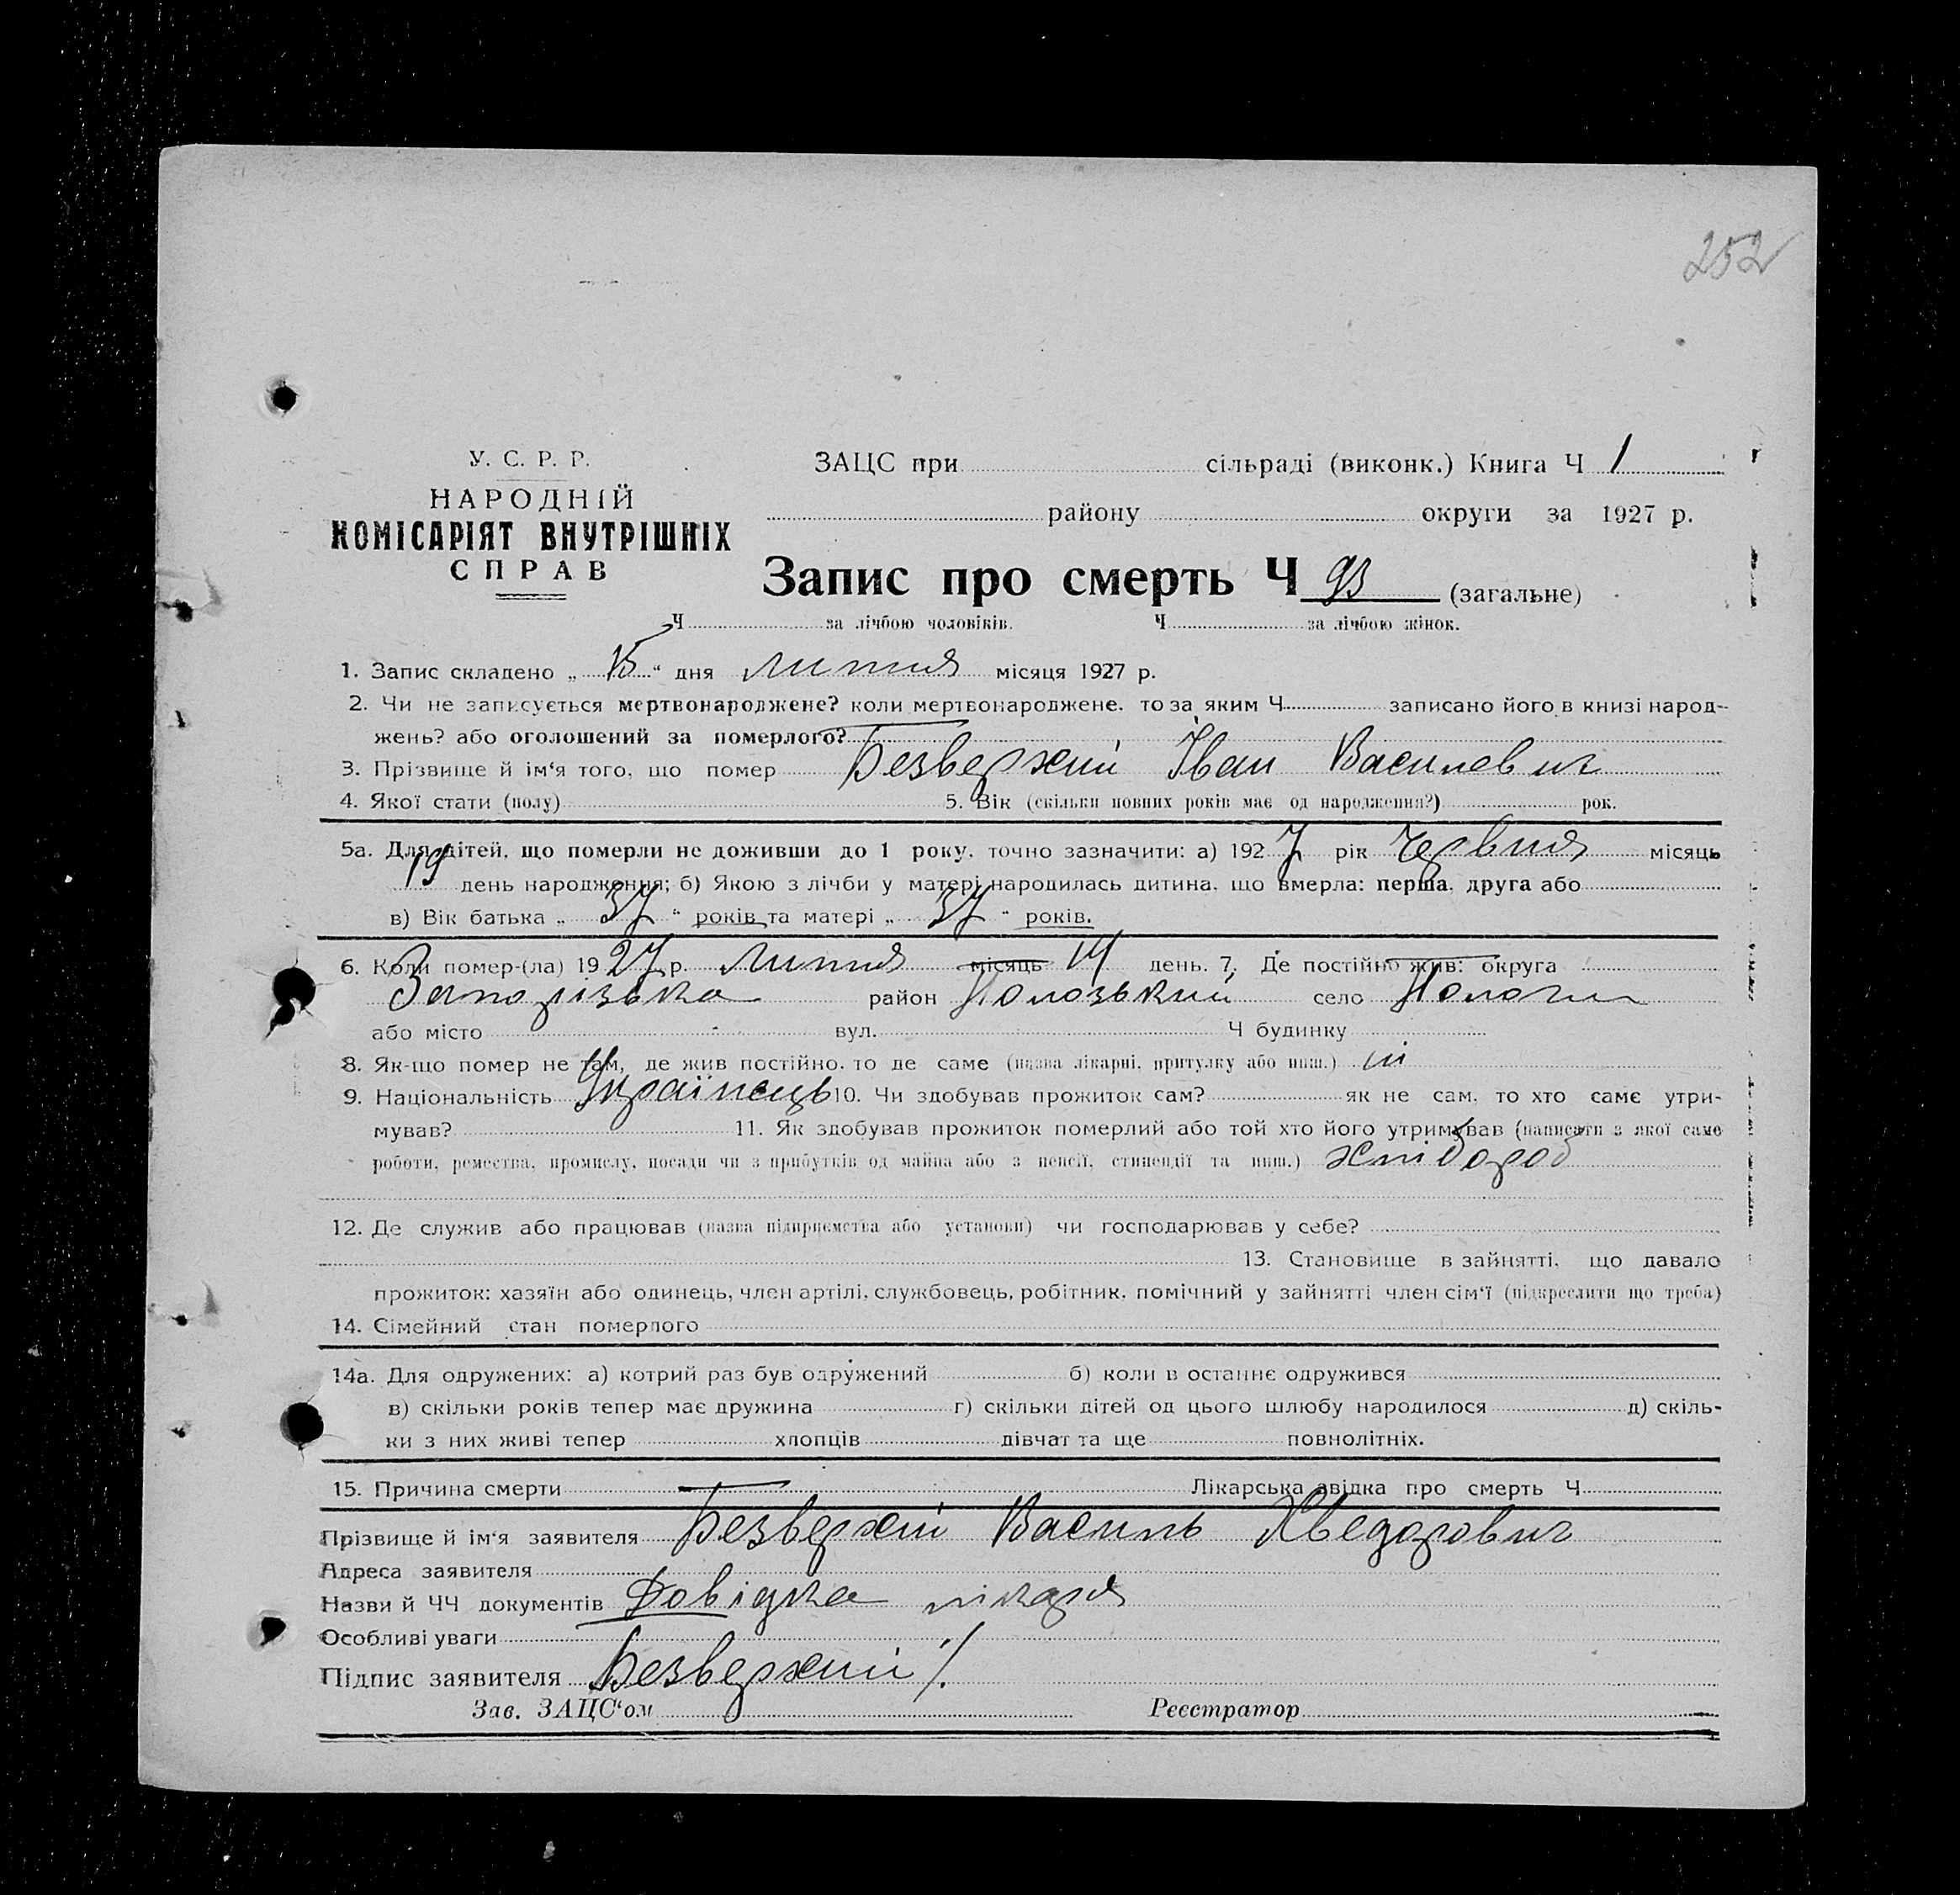 252
У. С. Р. Р.
НАРОДНІЙ
КОМІСАРІЯТ ВНУТРІШНІХ
СПРАВ
ЗАЦС при сільраді (виконк.) Книга Ч 1
району округи за 1927 р.
Запис про смерть Ч 93 (загальне)
Ч за лічбою чоловіків. Ч за лічбою жінок.
1. Запис складено „ 15 “ дня Липня місяця 1927 р.
2. Чи не записується мертвонароджене? коли мертвонароджене, то за яким Ч записано його в книзі народ-
жень? або оголошений за померлого?
3. Прізвище й ім‘я того, що помер Безверхий Іван Василевич
4. Якої стати (полу) 5. Вік (скільки повних років має од народження?) рок.
5а. Для дітей, що померли не доживши до 1 року, точно зазначити: а) 1927 рік Червня місяць
19 день народження; б) Якою з лічби у матері народилась дитина, що вмерла: перша, друга або
в) Вік батька „ 37 “ років та матері „ 37 “ років.
6. Коли помер-(ла) 1927 р. Липня місяць 14 день. 7. Де постійно жив: округа
Запорізька район Пологзький село Пологи
або місто вул. Ч будинку
8. Як-що помер не там, де жив постійно, то де саме (назва лікарні, притулку або инш.)
9. Національність Українець 10. Чи здобував прожиток сам? як не сам, то хто саме утри-
мував? 11. Як здобував прожиток померлий або той хто його утримував (написати з якої саме
роботи, ремества, промислу, посади чи з прибутків од майна або з пенсії, стипендії та инш.) хлібороб
12. Де служив або працював (назва підприємства або установи) чи господарював у себе?
13. Становище в зайнятті, що давало
прожиток: хазяїн або одинець, член артілі, службовець, робітник, помічний у зайнятті член сім‘ї (підкреслити що треба)
14. Сімейний стан померлого
14а. Для одружених: а) котрий раз був одружений б) коли в останнє одружився
в) скільки років тепер має дружина г) скільки дітей од цього шлюбу народилося д) скіль-
ки з них живі тепер хлопців дівчат та ще повнолітніх.
15. Причина смерти Лікарська звідка про смерть Ч
Прізвище й ім‘я заявителя Безверхий Василь Хведорович
Адреса заявителя
Назви й ЧЧ документів Довідка лікаря
Особливі уваги
Підпис заявителя Безверхий
Зав. ЗАЦС‘ом Реєстратор